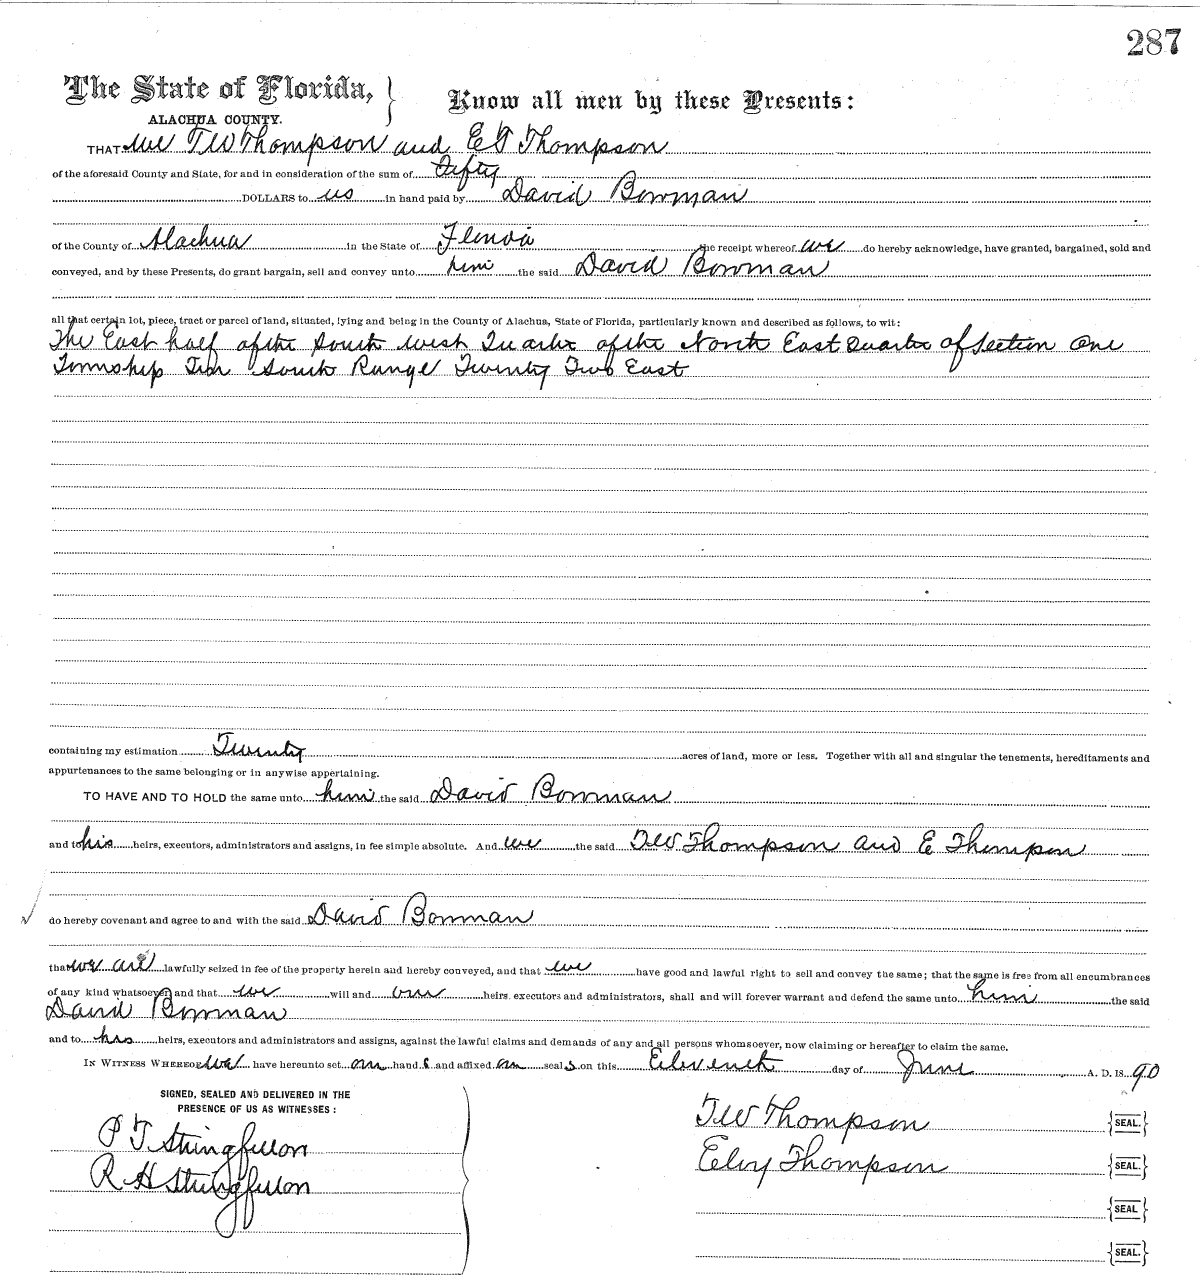 287
The State of Florida, } Know all men by these Presents:
ALACHUA COUNTY.
THAT we T W Thompson and E T Thompson
of the aforesaid County and State, for and in consideration of the sum of Fifty
DOLLARS to us in hand paid by David Bowman
of the County of Alachua in the State of Florida the receipt whereof we do hereby acknowledge, have granted, bargained, sold and
conveyed, and by these Presents, do grant bargain, sell and convey unto him the said David Bowman
all that certain lot, piece, tract or parcel of land, situated, lying and being in the County of Alachua, State of Florida, particularly known and described as follows, to wit:
The East half of the South West Quarter of the North East Quarter of Section One
Township Ten South Range Twenty Two East
containing my estimation Twenty acres of land, more or less. Together with all and singular the tenements, hereditaments and
appurtenances to the same belonging or in anywise appertaining.
TO HAVE AND TO HOLD the same unto him the said David Bowman
and to his heirs, executors, administrators and assigns, in fee simple absolute. And we the said T W Thompson and E Thompson
do hereby covenant and agree to and with the said David Bowman
that we are lawfully seized in fee of the property herein and hereby conveyed, and that we have good and lawful right to sell and convey the same; that the same is free from all encumbrances
of any kind whatsoever and that we will and our heirs executors and administrators, shall and will forever warrant and defend the same unto him the said
David Bowman
and to his heirs, executors and administrators and assigns, against the lawful claims and demands of any and all persons whomsoever, now claiming or hereafter to claim the same.
IN WITNESS WHEREOF we have hereunto set our hand s and affixed our seal s on this Eleventh day of June A. D. 18 90
SIGNED, SEALED AND DELIVERED IN THE
PRESENCE OF US AS WITNESSES:
P T Stringfellow
R H Stringfellow
T W Thompson {SEAL.}
Thompson {SEAL.}
{SEAL}
{SEAL.}